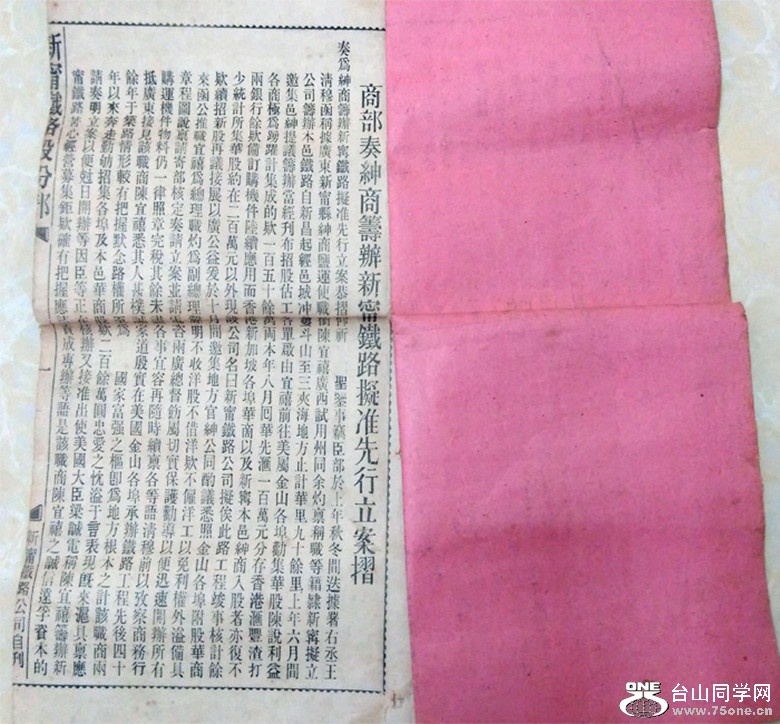 商部奏紳商籌辦新甯鐵路擬准先行立案摺
奏爲紳商籌辦新甯鐵路擬准先行立案恭摺仰祈 聖鑒事竊臣部於上年秋冬間迭據署右丞王
清穆函稱據廣東新甯縣紳商鹽運使職銜陳宜禧廣西試用州同余灼禀稱職等籍隸新甯擬立
公司籌辦本邑鐵路自新昌起經邑城冲蔞斗山至三夾海地方止計華里九十餘里上年六月間
邀集邑紳提議籌辦當經刋布招股佔工各單啟由宜禧前往美屬金山各埠勸集華股陳說利益
各商極爲踴躍計集成的欵一百五十餘萬両本年八月囘華先滙一百萬元分存香港滙豐渣打
兩銀行餘欵備訂購機件陸續應用而香港新加坡各埠華商以及新甯本邑紳商入股者亦復不
少統計所集華股約在二百萬元以外現設公司名曰新甯鐵路公司擬俟此路工程竣事核計餘
欵續招新股再議接展以廣公益爰於十月間邀集地方官紳公同酌議悉照金山各埠附股華商
來函公推宜禧爲總理職灼爲副總理聲明不收洋股不借洋欵不僱洋工以免利權外溢備具
章程圖說懇請寄部核定奏請立案並請咨兩廣總督飭屬切實保護勸導以便迅速開辦所有
購運機件物料仍一律照章完稅其餘未盡各事宜容再隨時續禀各等語淸穆前以攷察商務行
抵廣東接見該職商陳宜禧悉其人甚樸 道殷實在美國金山各埠承辦鐵路工程先後四十
餘年于築路情形較有把握默念路權所 爲 國家富强之樞卽爲地方根本之計該職商兩
年以來奔走勸 招集各埠及本邑華商股欵二百餘萬圓忠愛之忱溢于言表現旣來滬具禀應
請奏明立案以便尅日開辦等因臣等正 核辦又接准出使美國大臣梁誠電稱陳宜禧籌辦新
甯鐵路苦心經營募集鉅欵確有把握應 成專辦等語是該職商陳宜禧之誠信遠孚資本的
新甯鐵路股份部
一
新甯鐵路公司自刋
ONE
台山同学网
www.75one.cn